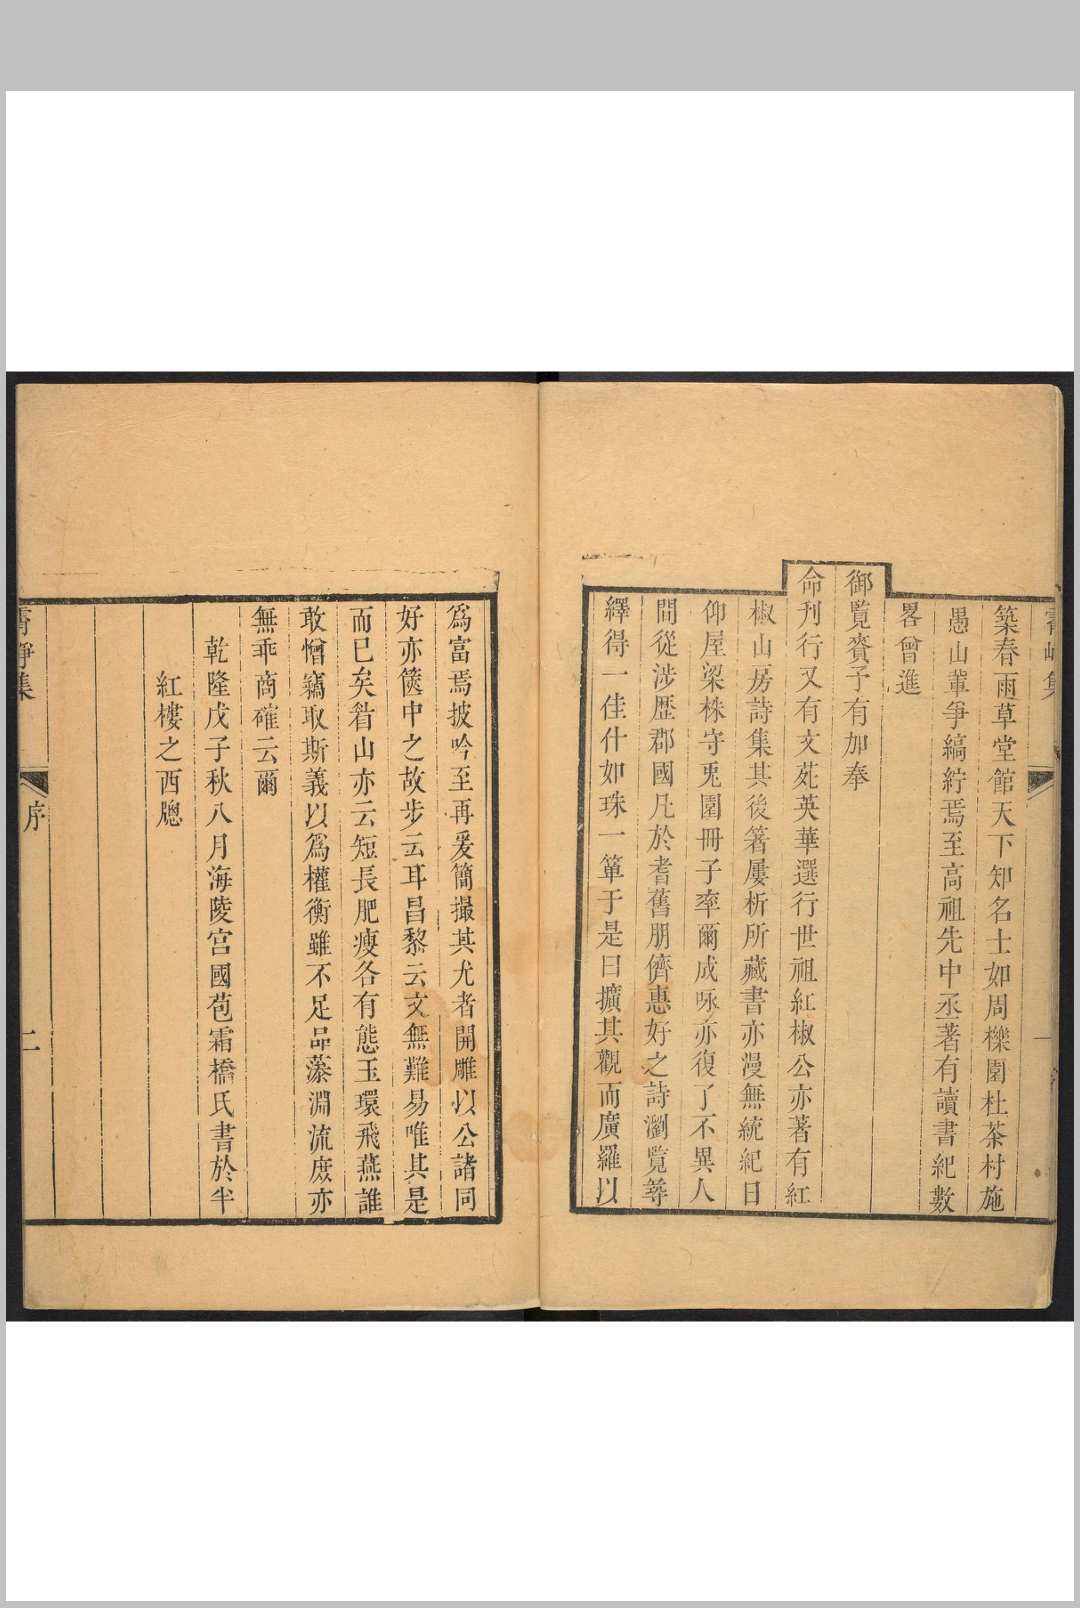 築春雨草堂館天下知名士如周櫟園杜茶村施
愚山輩爭縞紵焉至高祖先中丞著有讀書紀數
畧曾進
御覽賚予有加奉
命刊行又有文苑英華選行世祖紅椒公亦著有紅
椒山房詩集其後箸屢析所藏書亦漫無統紀日
仰屋梁株守兎園冊子率爾成咏亦復了不異人
間從涉歴郡國凡於耆舊朋儕惠好之詩瀏覽𢒫
繹得一佳什如珠一簞于是曰擴其觀而廣羅以
爲富焉披吟至再爰簡撮其尤者開雕以公諸同
好亦篋中之故步云耳昌黎云文無難易唯其是
而已矣眷山亦云短長肥瘦各有態玉環飛燕誰
敢憎竊取斯義以爲權衡雖不足品藻淵流庶亦
無乖商確云爾
乾隆戊子秋八月海陵宮國苞霜橋氏書於半
紅樓之西牎
霽崢集
序
二